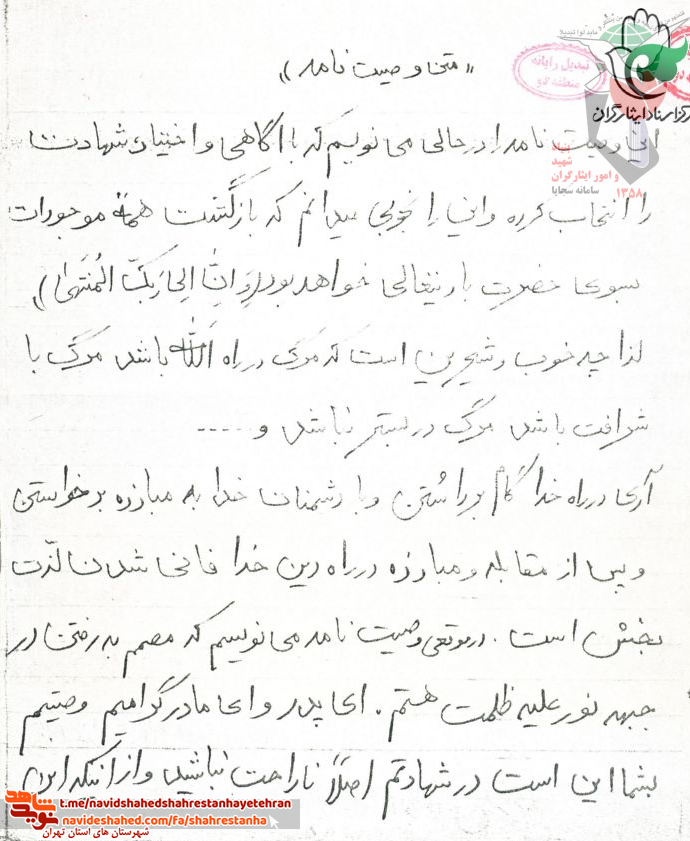 تبدیل رایانه
منطقه دو
مرکز اسناد ایثارگران
شهید
و امور ایثارگران
سامانه سجایا
۱۳۵۸
«متن وصیت نامه»
این وصیت نامه را در حالی می نویسم که با آگاهی و اختیار شهادت
را انتخاب کرده و این را بخوبی میدانم که بازگشت همهٔ موجودات
بسوی حضرت باریتعالی خواهد بود (وَاِنَّ اِلی رَبِّکَ المُنتَهیٰ)
لذا چه خوب و شیرین است که مرگ در راه اللّٰه باشد مرگ با
شرافت باشد مرگ در بستر نباشد و .....
آری در راه خدا گام برداشتن و با دشمنان خدا به مبارزه برخواستن
و پس از مقابله و مبارزه در راه دین خدا فانی شدن لذّت
بخش است . در موقعی وصیت نامه می نویسم که مصمم به رفتن در
جبهه نور علیه ظلمت هستم . ای پدر و ای مادر گرامیم وصیتم
بشما این است در شهادتم اصلاً ناراحت نباشید و از اینکه
شاهد
نوید
t.me/navidshahedshahrestanhayetehran
navideshahed.com/fa/shahrestanha
شهرستان های استان تهران